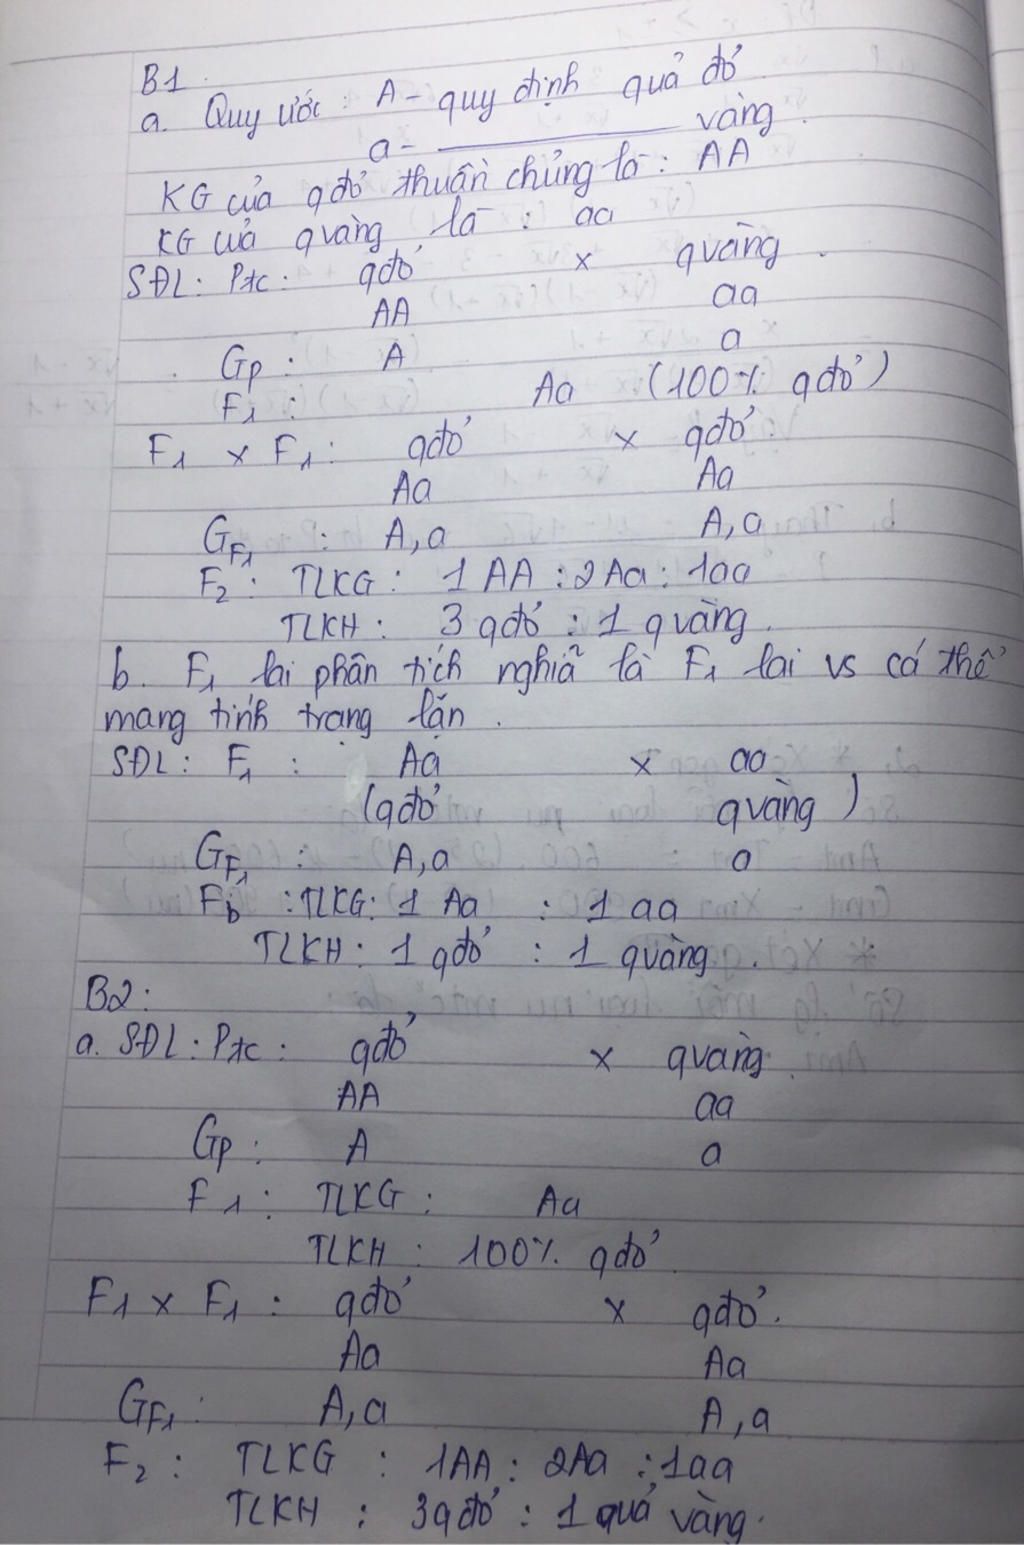 B1.
a. Quy ước : A - quy định quả đỏ
a - ________ vàng.
KG của qđỏ thuần chủng là : AA
KG của qvàng là : aa
SĐL : Ptc : qđỏ x qvàng.
AA aa
Gp : A a
F1 : Aa (100% qđỏ)
F1 x F1 : qđỏ x qđỏ.
Aa Aa
GF1 : A, a A, a
F2 : TLKG : 1 AA : 2 Aa : 1aa
TLKH : 3 qđỏ : 1 qvàng.
b. F1 lai phân tích nghiã là F1 lai vs cá thể
mang tính trạng lặn.
SĐL : F1 : Aa x aa
(qđỏ qvàng)
GF1 : A, a a
Fb : TLKG : 1 Aa : 1 aa
TLKH : 1 qđỏ : 1 qvàng.
B2 :
a. SĐL : Ptc : qđỏ x qvàng.
AA aa
Gp : A a
F1 : TLKG : Aa
TLKH : 100% qđỏ.
F1 x F1 : qđỏ x qđỏ.
Aa Aa
GF1 : A, a A, a
F2 : TLKG : 1AA : 2Aa : 1aa
TLKH : 3qđỏ : 1 quả vàng.